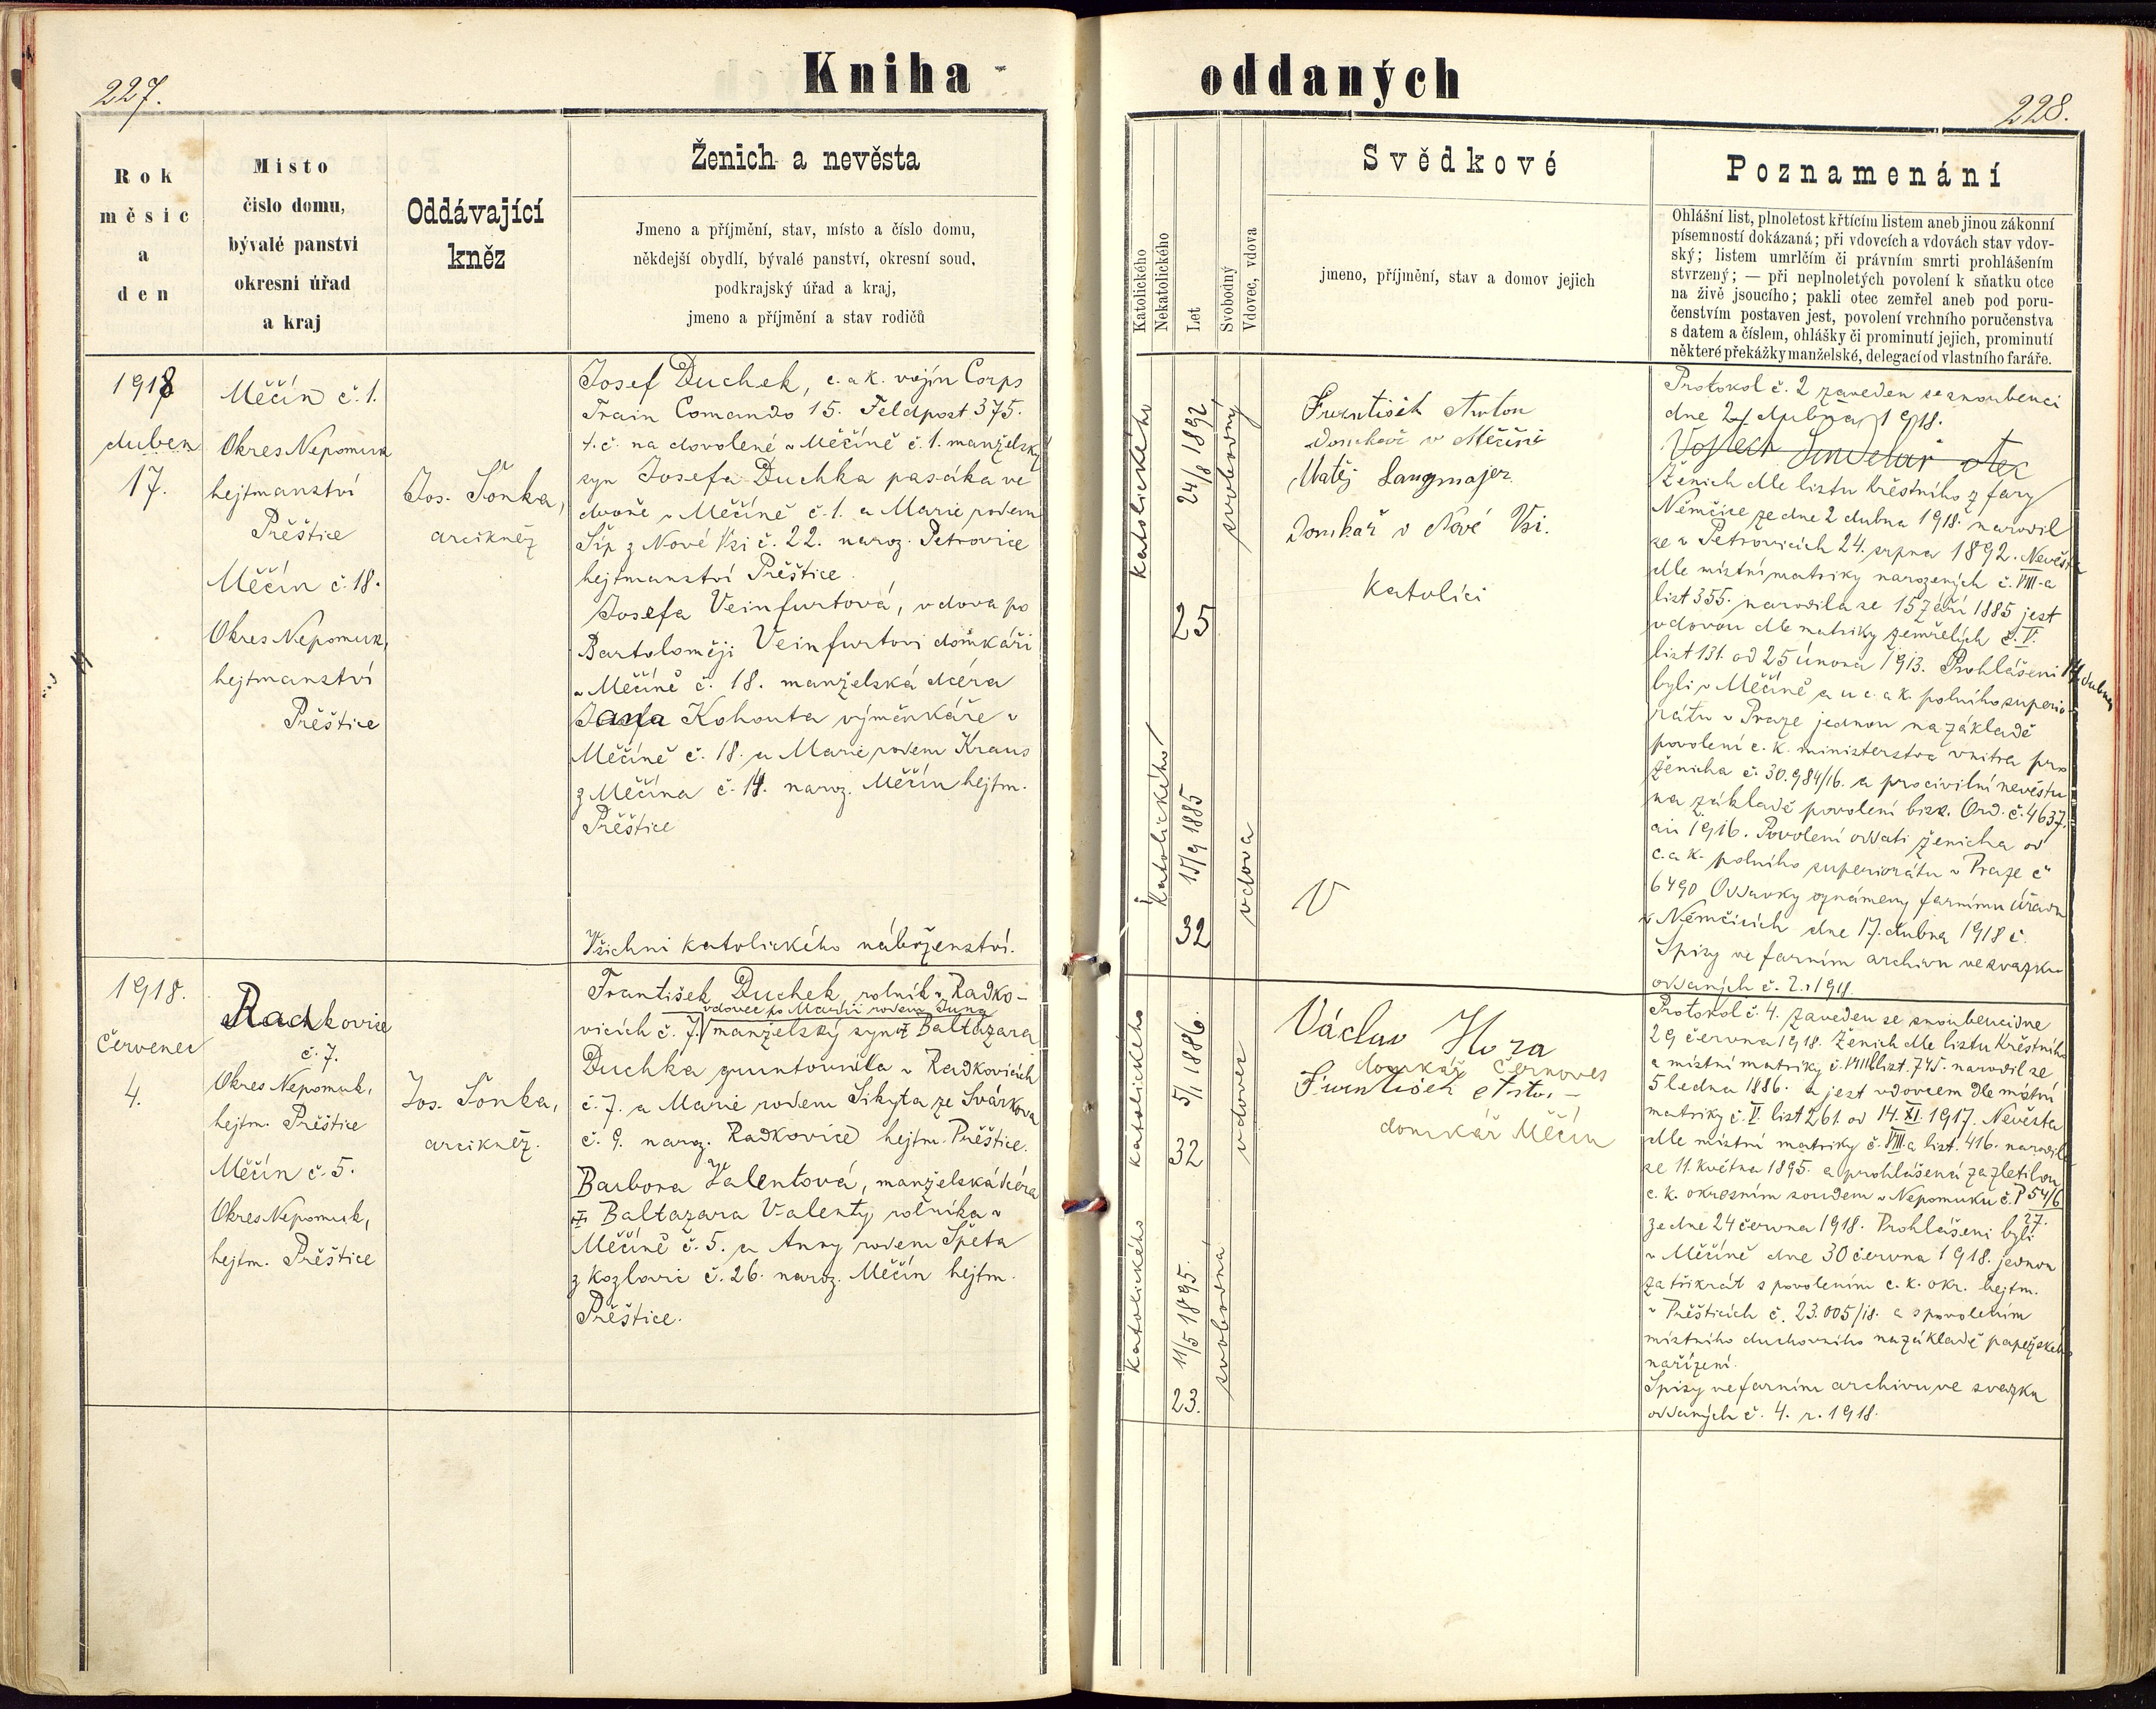 227.
Kniha
Rok
měsíc
a
den
Místo
číslo domu,
bývalé panství
okresní úřad
a kraj
Oddávající
kněz
Ženich a nevěsta
Jmeno a příjmění, stav, místo a číslo domu,
někdejší obydlí, bývalé panství, okresní soud,
podkrajský úřad a kraj,
jmeno a příjmění a stav rodičů
1918
duben
17.
Měčín č. 1.
Okres Nepomuk
hejtmanství
Přěštice
Měčín č. 18.
Okres Nepomuk,
hejtmanství
Přěštice
Jos. Šonka,
arcikněz
Josef Duchek, c. a k. vojín Corps
Train Comando 15. Feldpost 375.
t. č. na dovolené v Měčíně č. 1. manželský
syn Josefa Duchka pasáka ve
dvoře v Měčíně č. 1. a Marie rodem
Šíp z Nové Vsi č. 22. naroz. Petrovice
hejtmanství Přěštice.
Josefa Veinfurtová, vdova po
Bartoloměji Veinfurtovi domkáři
v Měčíně č. 18. manželská dcéra
Jana Kohouta výměnkáře v
Měčíně č. 18. a Marie rodem Kraus
z Měčína č. 14. naroz. Měčín hejtm.
Přěštice
Všichni katolického náboženství.
1918.
červenec
4.
Radkovice
č. 7.
Okres Nepomuk,
hejtm. Přěštice
Měčín č. 5.
Okres Nepomuk,
hejtm. Přěštice
Jos. Šonka,
arcikněz.
František Duchek, rolník v Radko-
vdovec po Marii rodem Jung
vicích č. 7. manželský syn Baltazara
Duchka gruntovníka v Radkovicích
č. 7. a Marie rodem Sikyta ze Svárkova
č. 9. naroz. Radkovice hejtm. Přěštice.
Barbora Valentová, manželská dcéra
Baltazara Valenty rolníka v
Měčíně č. 5. a Anny rodem Špéta
z Kozlovic č. 26. naroz. Měčín hejtm.
Přěštice.
oddaných
228.
Katolického
Nekatolického
Let
Svobodný
Vdovec, vdova
Svědkové
jmeno, příjmění, stav a domov jejich
Poznamenání
Ohlášní list, plnoletost křtícím listem aneb jinou zákonní
písemností dokázaná; při vdovcích a vdovách stav vdov-
ský; listem umrlčím či právním smrti prohlášením
stvrzený; — při neplnoletých povolení k sňatku otce
na živě jsoucího; pakli otec zemřel aneb pod poru-
čenstvím postaven jest, povolení vrchního poručenstva
s datem a číslem, ohlášky či prominutí jejich, prominutí
některé překážky manželské, delegací od vlastního faráře.
katolického
24/8 1892
25
svobodný
katolického
15/9 1885
32
vdova
František
domkář v Měčíně
Matěj Langmajer
domkář v Nové Vsi.
Katolíci
Protokol č. 2 zaveden se snoubenci
dne 2/ dubna 1918.
Vojtěch Sindelář otec
Ženich dle listu křestního z fary
Němčice ze dne 2 dubna 1918. narodil
se v Petrovicích 24. srpna 1892. Nevěsta
dle místní matriky narozených č. VIII-a
list 355. narodila se 15 září 1885 jest
vdovou dle matriky zemřelých č. V.
list 131. od 25 února 1913. Prohlášeni 14 dubna
byli v Měčíně a u c. a k. polního superio-
rátu v Praze jednou na základě
povolení c. k. ministerstva vnitra pro
ženicha č. 30.984/16. a pro civilní nevěstu
na základě povolení bisk. Ord. č. 4637.
ai 1916. Povolení oddati ženicha od
c. a k. polního superiorátu v Praze č
6490 Oddavky oznámeny farnímu úřadu
v Němčicích dne 17. dubna 1918 č.
Spisy ve farním archivu ve svazku
oddaných č. 2. r 1918.
katolického
5/1 1886.
32
vdovec
katolického
11/5 1895.
23.
svobodná
Václav Hora
domkář Černoves
František
domkář Měčín
Protokol č. 4. zaveden se snoubenci dne
29 června 1918. Ženich dle listu křestního
a místní matriky č. VIII list. 745. narodil se
5 ledna 1886. a jest vdovcem dle místní
matriky č. V. list 261. od 14. XI. 1917. Nevěsta
dle místní matriky č. VIII-a list. 416. narodila
se 11. května 1895. a prohlášená za zletilou
c. k. okresním soudem v Nepomuku č. P 54/6
27.
ze dne 24 června 1918. Prohlášeni byli
v Měčíně dne 30 června 1918. jednou
za třikrát s povolením c. k. okr. hejtm.
v Přěšticích č. 23.005/18. a s povolením
místního duchovního na základě papežského
nařízení.
Spisy ve farním archivu ve svazku
oddaných č. 4. r. 1918.